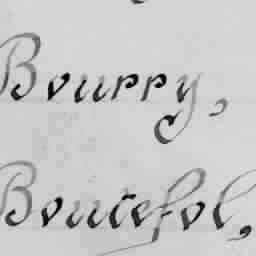 Bourry,
Boutefol,